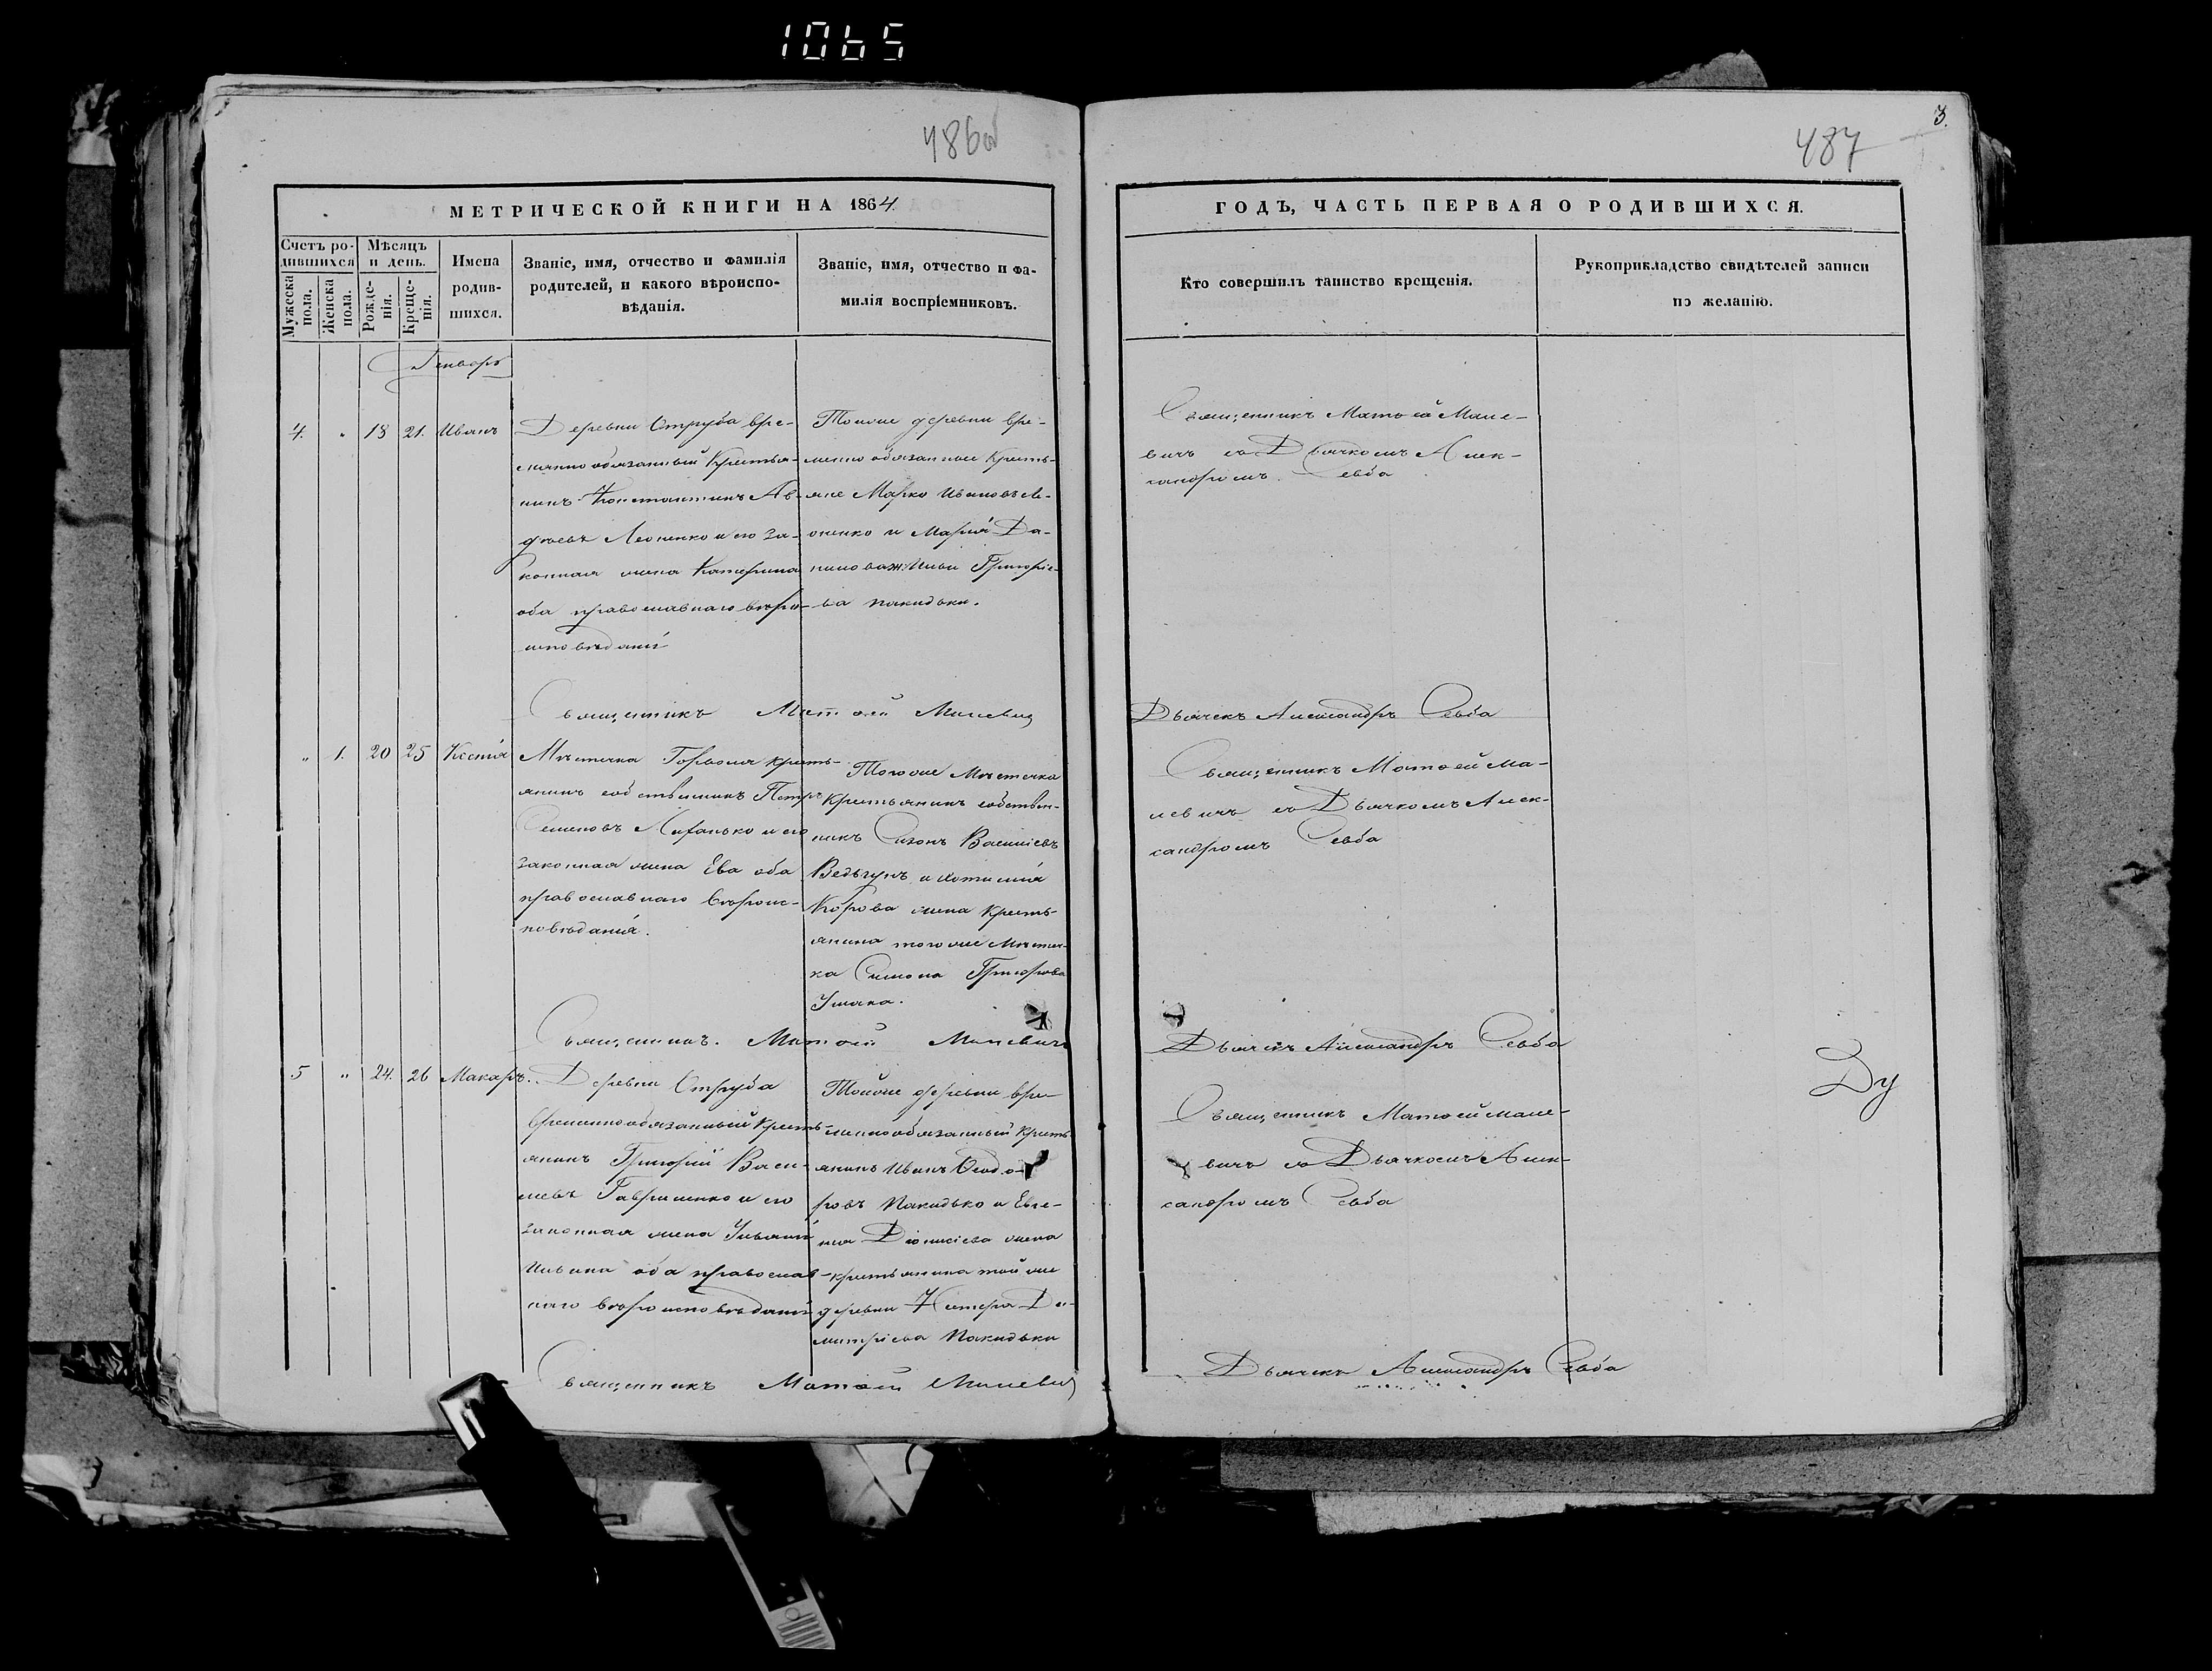 1065
486об
3.
487
МЕТРИЧЕСКОЙ КНИГИ НА 1864
ГОДЪ, ЧАСТЬ ПЕРВАЯ О РОДИВШИХСЯ.
Счетъ ро-
дившихся
Мѣсяцъ
и день.
Мужеска
пола.
Женска
пола.
Рожде-
нія.
Креще-
нія.
Имена
родив-
шихся.
Званіе, имя, отчество и фамилія
родителей, и какого вѣроиспо-
вѣданія.
Званіе, имя, отчество и фа-
милія воспріемниковъ.
Кто совершилъ таинство крещенія.
Рукоприкладство свидѣтелей записи
по желанію.
Генварь
4. " 18 21. Иванъ
Деревни Струба вре-
менно обязанный Крестья-
нинъ Константинъ Ав-
дѣевъ Леоненко и его за-
конная жена Катерина
оба православнаго вѣро-
исповѣданія
Тойже деревни вре-
менно обязанные Кресть-
яне Марко Ивановъ Ле-
оненко и Марія Да-
нилова Григорье-
ва Пакидьки.
Священникъ Матѳей Мале-
вичъ съ Дьячкомъ Алек-
сандромъ Севба
Священникъ Матѳей Малевичъ
Дьячекъ Александръ Севба
" 1. 20 25 Ксенія
Мѣстечка Горволя кресть-
янинъ собственникъ Петръ
Семеновъ и его
законная жена Ева оба
православнаго вѣроис-
повѣданія.
Тогоже Мѣстечка
Крестьянинъ собствен-
никъ Сазонъ Василіевъ
Ведьгунъ и
Карпова жена Кресть-
янина тогоже Мѣстеч-
ка Симона Григорьева
Священникъ Матѳей Ма-
левичъ съ Дьячкомъ Алек-
сандромъ Севба
Священникъ. Матѳей Малевичъ
Дьячекъ Александръ Севба
5 " 24. 26 Макаръ.
Деревни Струба
временнообязанный Кресть-
янинъ Григорій Васи-
льевъ Гавриленко и его
законная жена Ульянія
Ильина оба православ-
наго вѣроисповѣданія
Тойже деревни вре-
меннообязанный Кресть-
янинъ Иванъ Ѳеодо-
ровъ Пакидько и Евге-
нія Діонисіева жена
крестьянина той же
деревни Нестера Ди-
митріева Пакидьки
Священникъ Матѳей Мале-
вичъ съ Дьячкомъ Алек-
сандромъ Севба
Ду
Священникъ Матѳей Малевичъ
Дьячекъ Александръ Севба